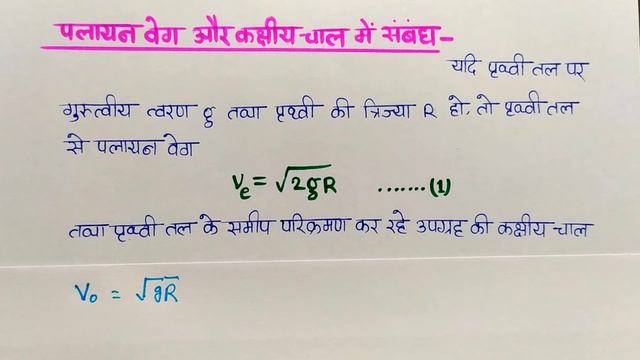 पलायन वेग और कक्षीय चाल में संबंध-
यदि पृथ्वी तल पर
गुरुत्वीय त्वरण g तथा पृथ्वी की त्रिज्या R हो, तो पृथ्वी तल
से पलायन वेग
Ve = √2gR .......(1)
तथा पृथ्वी तल के समीप परिक्रमण कर रहे उपग्रह की कक्षीय चाल
Vo = √gR